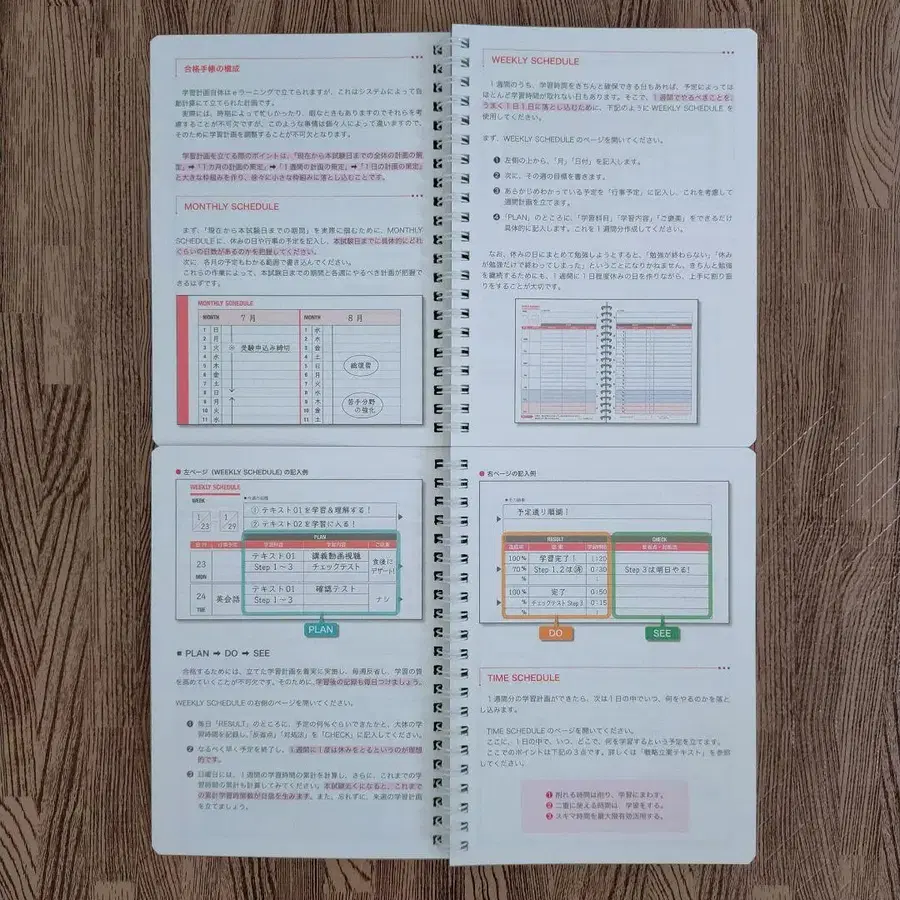 合格手帳の構成
学習計画自体はeラーニングで立てられますが、これはシステムによって自
動計算にて立てられた計画です。
実際には、時期によって忙しかったり、暇なときもありますのでそれらを考
慮することが不可欠ですが、このような事情は個々人によって違いますので、
そのために学習計画を調整することが不可欠となります。
学習計画を立てる際のポイントは、「現在から本試験日までの全体の計画の策
定」➡「1カ月の計画の策定」➡「1週間の計画の策定」➡「1日の計画の策定」
と大きな枠組みを作り、徐々に小さな枠組みに落とし込むことです。
MONTHLY SCHEDULE
まず、「現在から本試験日までの期間」を実際に掴むために、MONTHLY
SCHEDULE に、休みの日や行事の予定を記入し、本試験日までに具体的にどれ
ぐらいの日数があるのかを把握してください。
次に、各月の予定もわかる範囲で書き込んでください。
これらの作業によって、本試験日までの期間と各週にやるべき計画が把握で
きるはずです。
MONTHLY SCHEDULE
MONTH 7月 MONTH 8月
1 日 1 水
2 月
3 火 ※ 受験申込み締切
4 水 4 土
5 木 5 日
6 金 6 月
7 土 7 火
8 日 8 水
9 月 9 木
10 火 10 金
11 水 11 土
苦手分野
の強化
WEEKLY SCHEDULE
1週間のうち、学習時間をきちんと確保できる日もあれば、予定によっては
ほとんど学習時間が取れない日もあります。そこで、1週間でやるべきことを、
うまく1日1日に落とし込むために、下記のように WEEKLY SCHEDULE を
使用してください。
まず、WEEKLY SCHEDULE のページを開いてください。
❶ 左側の上から、「月」「日付」を記入します。
❷ 次に、その週の目標を書きます。
❸ あらかじめわかっている予定を「行事予定」に記入し、これを考慮して
週間計画を立てます。
❹ 「PLAN」のところに、「学習科目」「学習内容」「ご褒美」をできるだけ
具体的に記入します。これを1週間分作成してください。
なお、休みの日にまとめて勉強しようとすると、「勉強が終わらない」「休み
が勉強だけで終わってしまった」ということになりかねません。きちんと勉強
を継続するためにも、1週間に1日程度休みの日を作りながら、上手に割り振
りをすることが大切です。
● 左ページ (WEEKLY SCHEDULE) の記入例
WEEKLY SCHEDULE
WEEK
1/23 1/29
① テキスト01を学習&理解する!
② テキスト02を学習に入る!
PLAN
日付 行事予定 学習科目 学習内容 ご褒美
23 MON テキスト01 Step 1~3 講義動画視聴 チェックテスト 食後にデザート!
24 TUE 英会話 テキスト01 Step 1~3 確認テスト ナシ
PLAN
■ PLAN ➡ DO ➡ SEE
合格するためには、立てた学習計画を着実に実施し、毎週反省し、学習の質
を高めていくことが不可欠です。そのために、学習後の記録も毎日つけましょう。
WEEKLY SCHEDULE の右側のページを開いてください。
❶ 毎日「RESULT」のところに、予定の何%ぐらいできたかと、大体の学
習時間を記録し、「反省点」「対処法」を「CHECK」に記入してください。
❷ なるべく早く予定を終了し、1週間に1度は休みをとるというのが理想
的です。
❸ 日曜日には、1週間の学習時間の累計を計算し、さらに、これまでの学
習時間の累計も計算してみてください。本試験近くになると、これまで
の累計学習時間数が自信を生みます。また、忘れずに、来週の学習計画
を立てましょう。
● 右ページの記入例
予定通り順調!
RESULT CHECK
達成率 結果 学習時間 反省点・対処法
100% 学習完了! 1:20
70% Step 1、2は済 0:30 Step 3は明日やる!
% :
100% 完了 0:50
% チェックテスト Step 3 0:15
% :
DO SEE
TIME SCHEDULE
1週間分の学習計画ができたら、次は1日の中でいつ、何をやるのかを落と
し込みます。
TIME SCHEDULE のページを開いてください。
ここに、1日の中で、いつ、どこで、何を学習するという予定を立てます。
ここでのポイントは下記の3点です。詳しくは「戦略立案テキスト」を参照
してください。
❶ 削れる時間は削り、学習にまわす。
❷ 二重に使える時間は、学習をする。
❸ スキマ時間を最大限有効活用する。